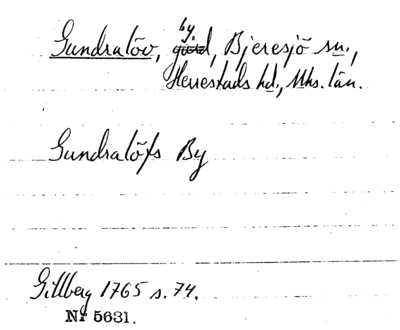 Gundralöv, by, Bjeresjö sn.,
Herrestads hd., Mhs. län.
Gundralöfs By
Gillberg 1765 s. 74.
Nr 5631.